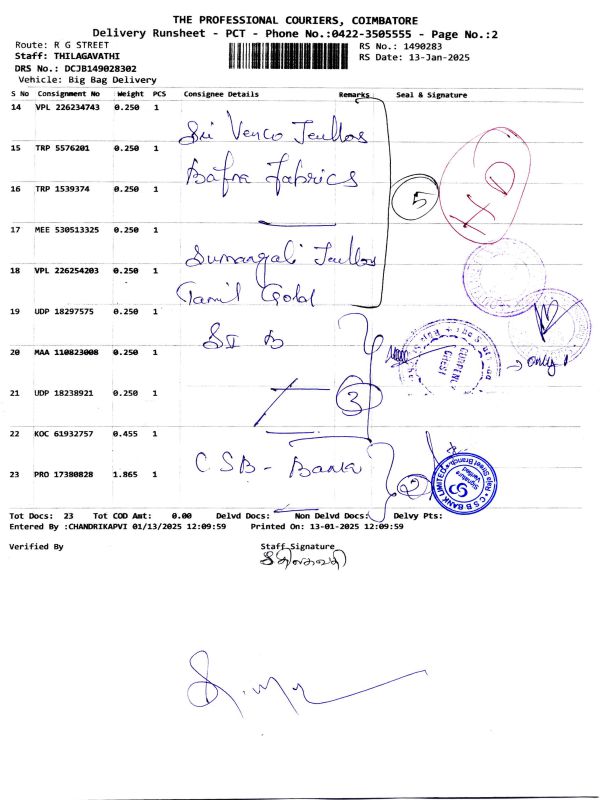 THE PROFESSIONAL COURIERS, COIMBATORE
Delivery Runsheet - PCT - Phone No.:0422-3505555 - Page No.:2
Route: R G STREET
RS No.: 1490283
Staff: THILAGAVATHI
RS Date: 13-Jan-2025
DRS No.: DCJB149028302
Vehicle: Big Bag Delivery
S No Consignment No Weight PCS Consignee Details Remarks Seal & Signature
14 VPL 226234743 0.250 1 Sri Venco
15 TRP 5576201 0.250 1 Bafna Fabrics
16 TRP 1539374 0.250 1
5
HD
17 MEE 530513325 0.250 1 Sumangali
18 VPL 226254203 0.250 1 Tamil Gold
19 UDP 18297575 0.250 1 SIB
20 MAA 110823008 0.250 1
CURRENCY CHEST
only 1
21 UDP 18238921 0.250 1
3
22 KOC 61932757 0.455 1
23 PRO 17380828 1.865 1 CSB - Bank
2
C S B BANK LIMITED
Signature Verified
Tot Docs: 23 Tot COD Amt: 0.00 Delvd Docs: Non Delvd Docs: Delvy Pts:
Entered By :CHANDRIKAPVI 01/13/2025 12:09:59 Printed On: 13-01-2025 12:09:59
Verified By
Staff Signature